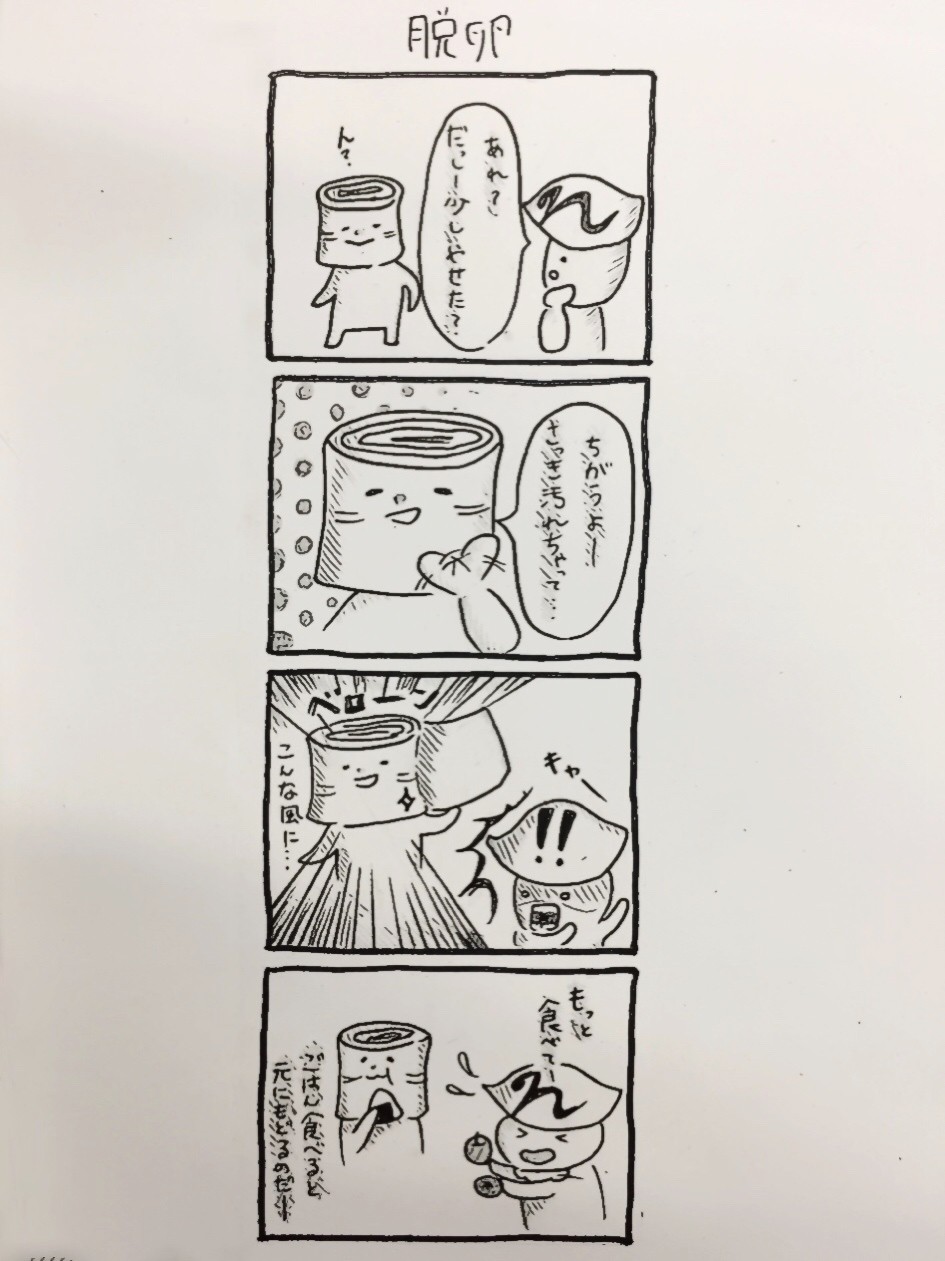 脱卵
あれ?
だっしー少しやせた?
ん?
ちがうよー
さっき汚れちゃって…
ベローン
こんな風に…
キャー
!!
もっと
食べてー
ごはん食べると
元にもどるのだー